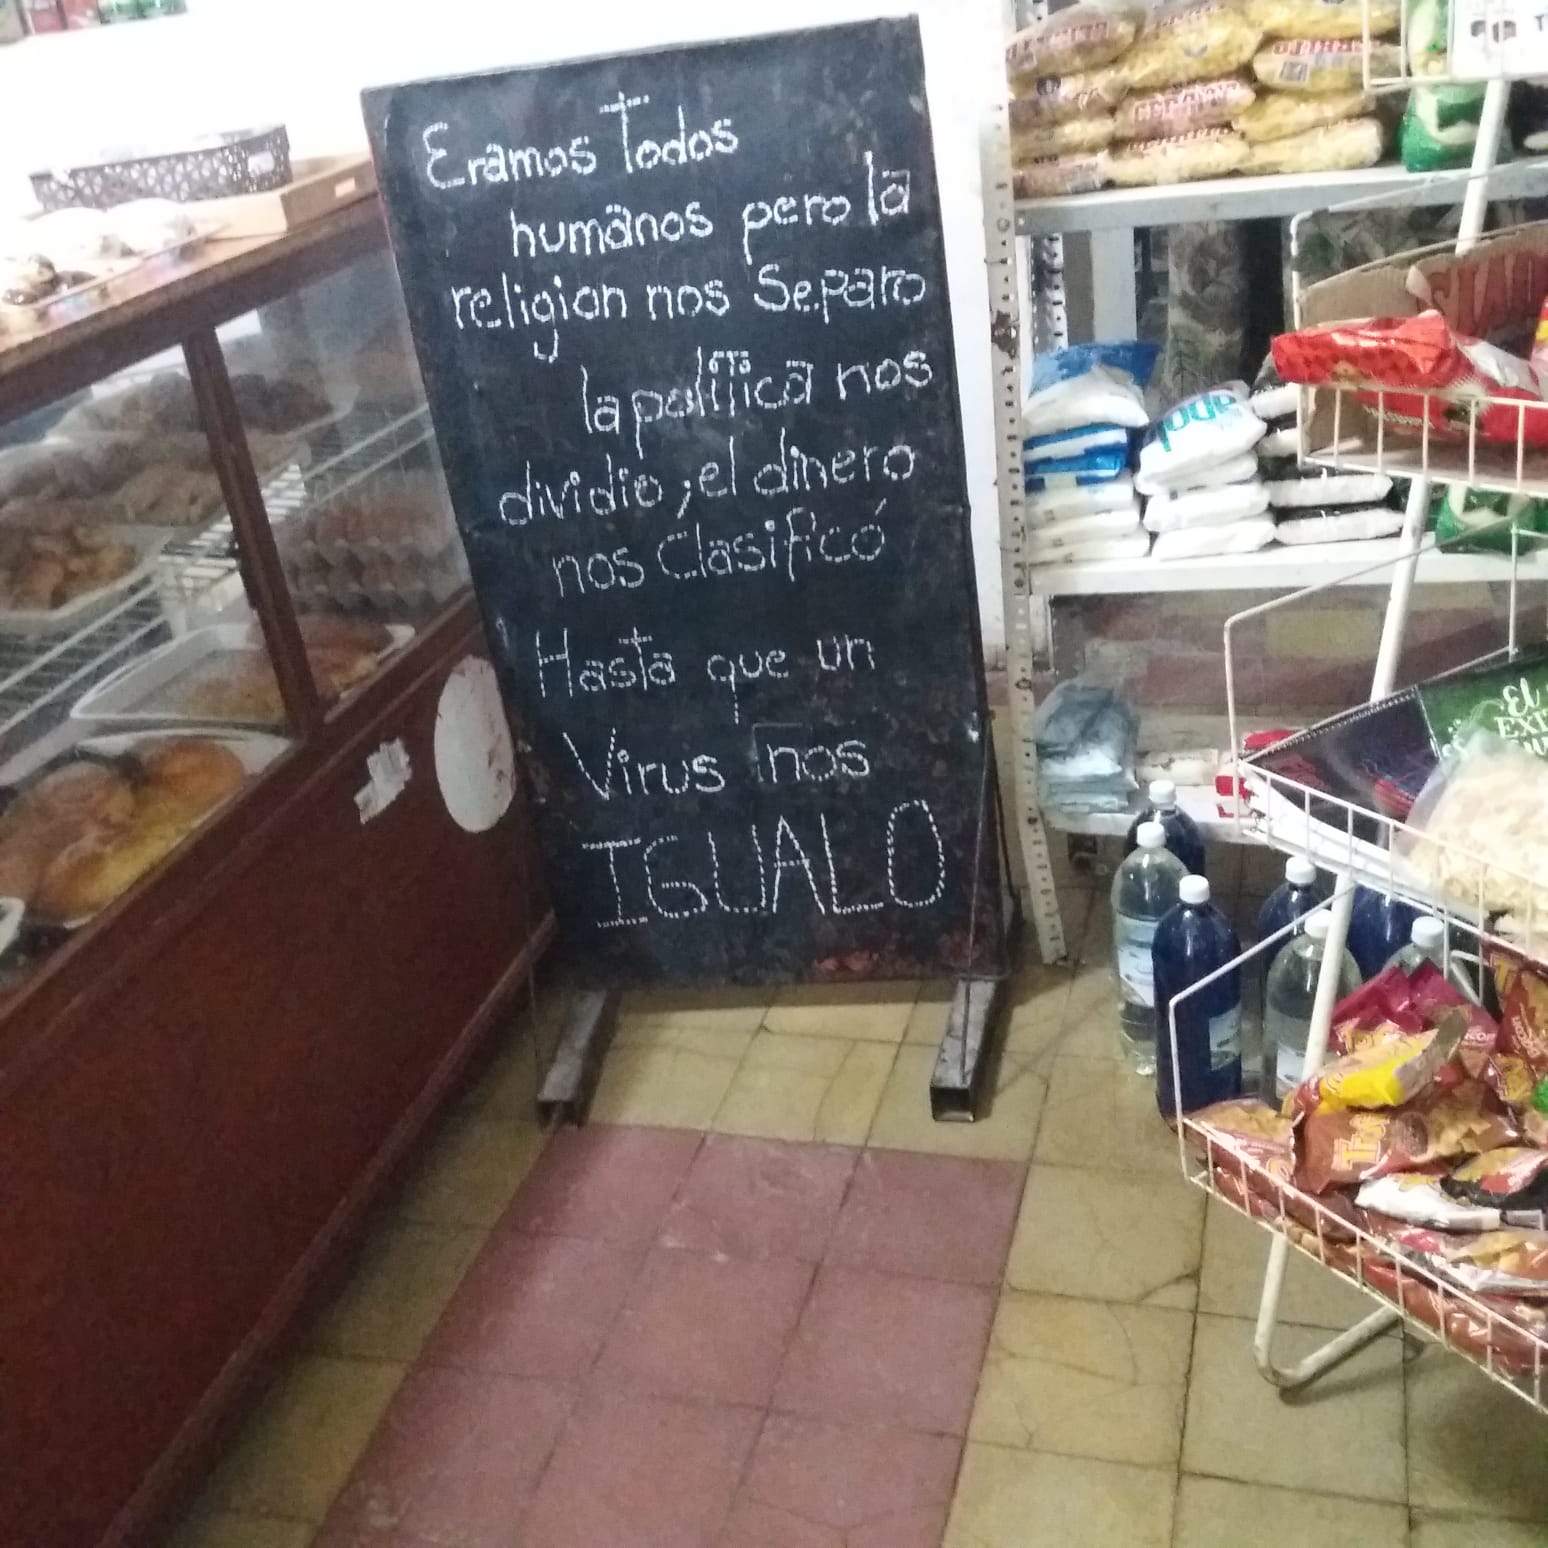 Eramos Todos
humanos pero la
religion nos Separo
la politica nos
dividio, el dinero
nos Clasificó
Hasta que un
Virus nos
IGUALO
El